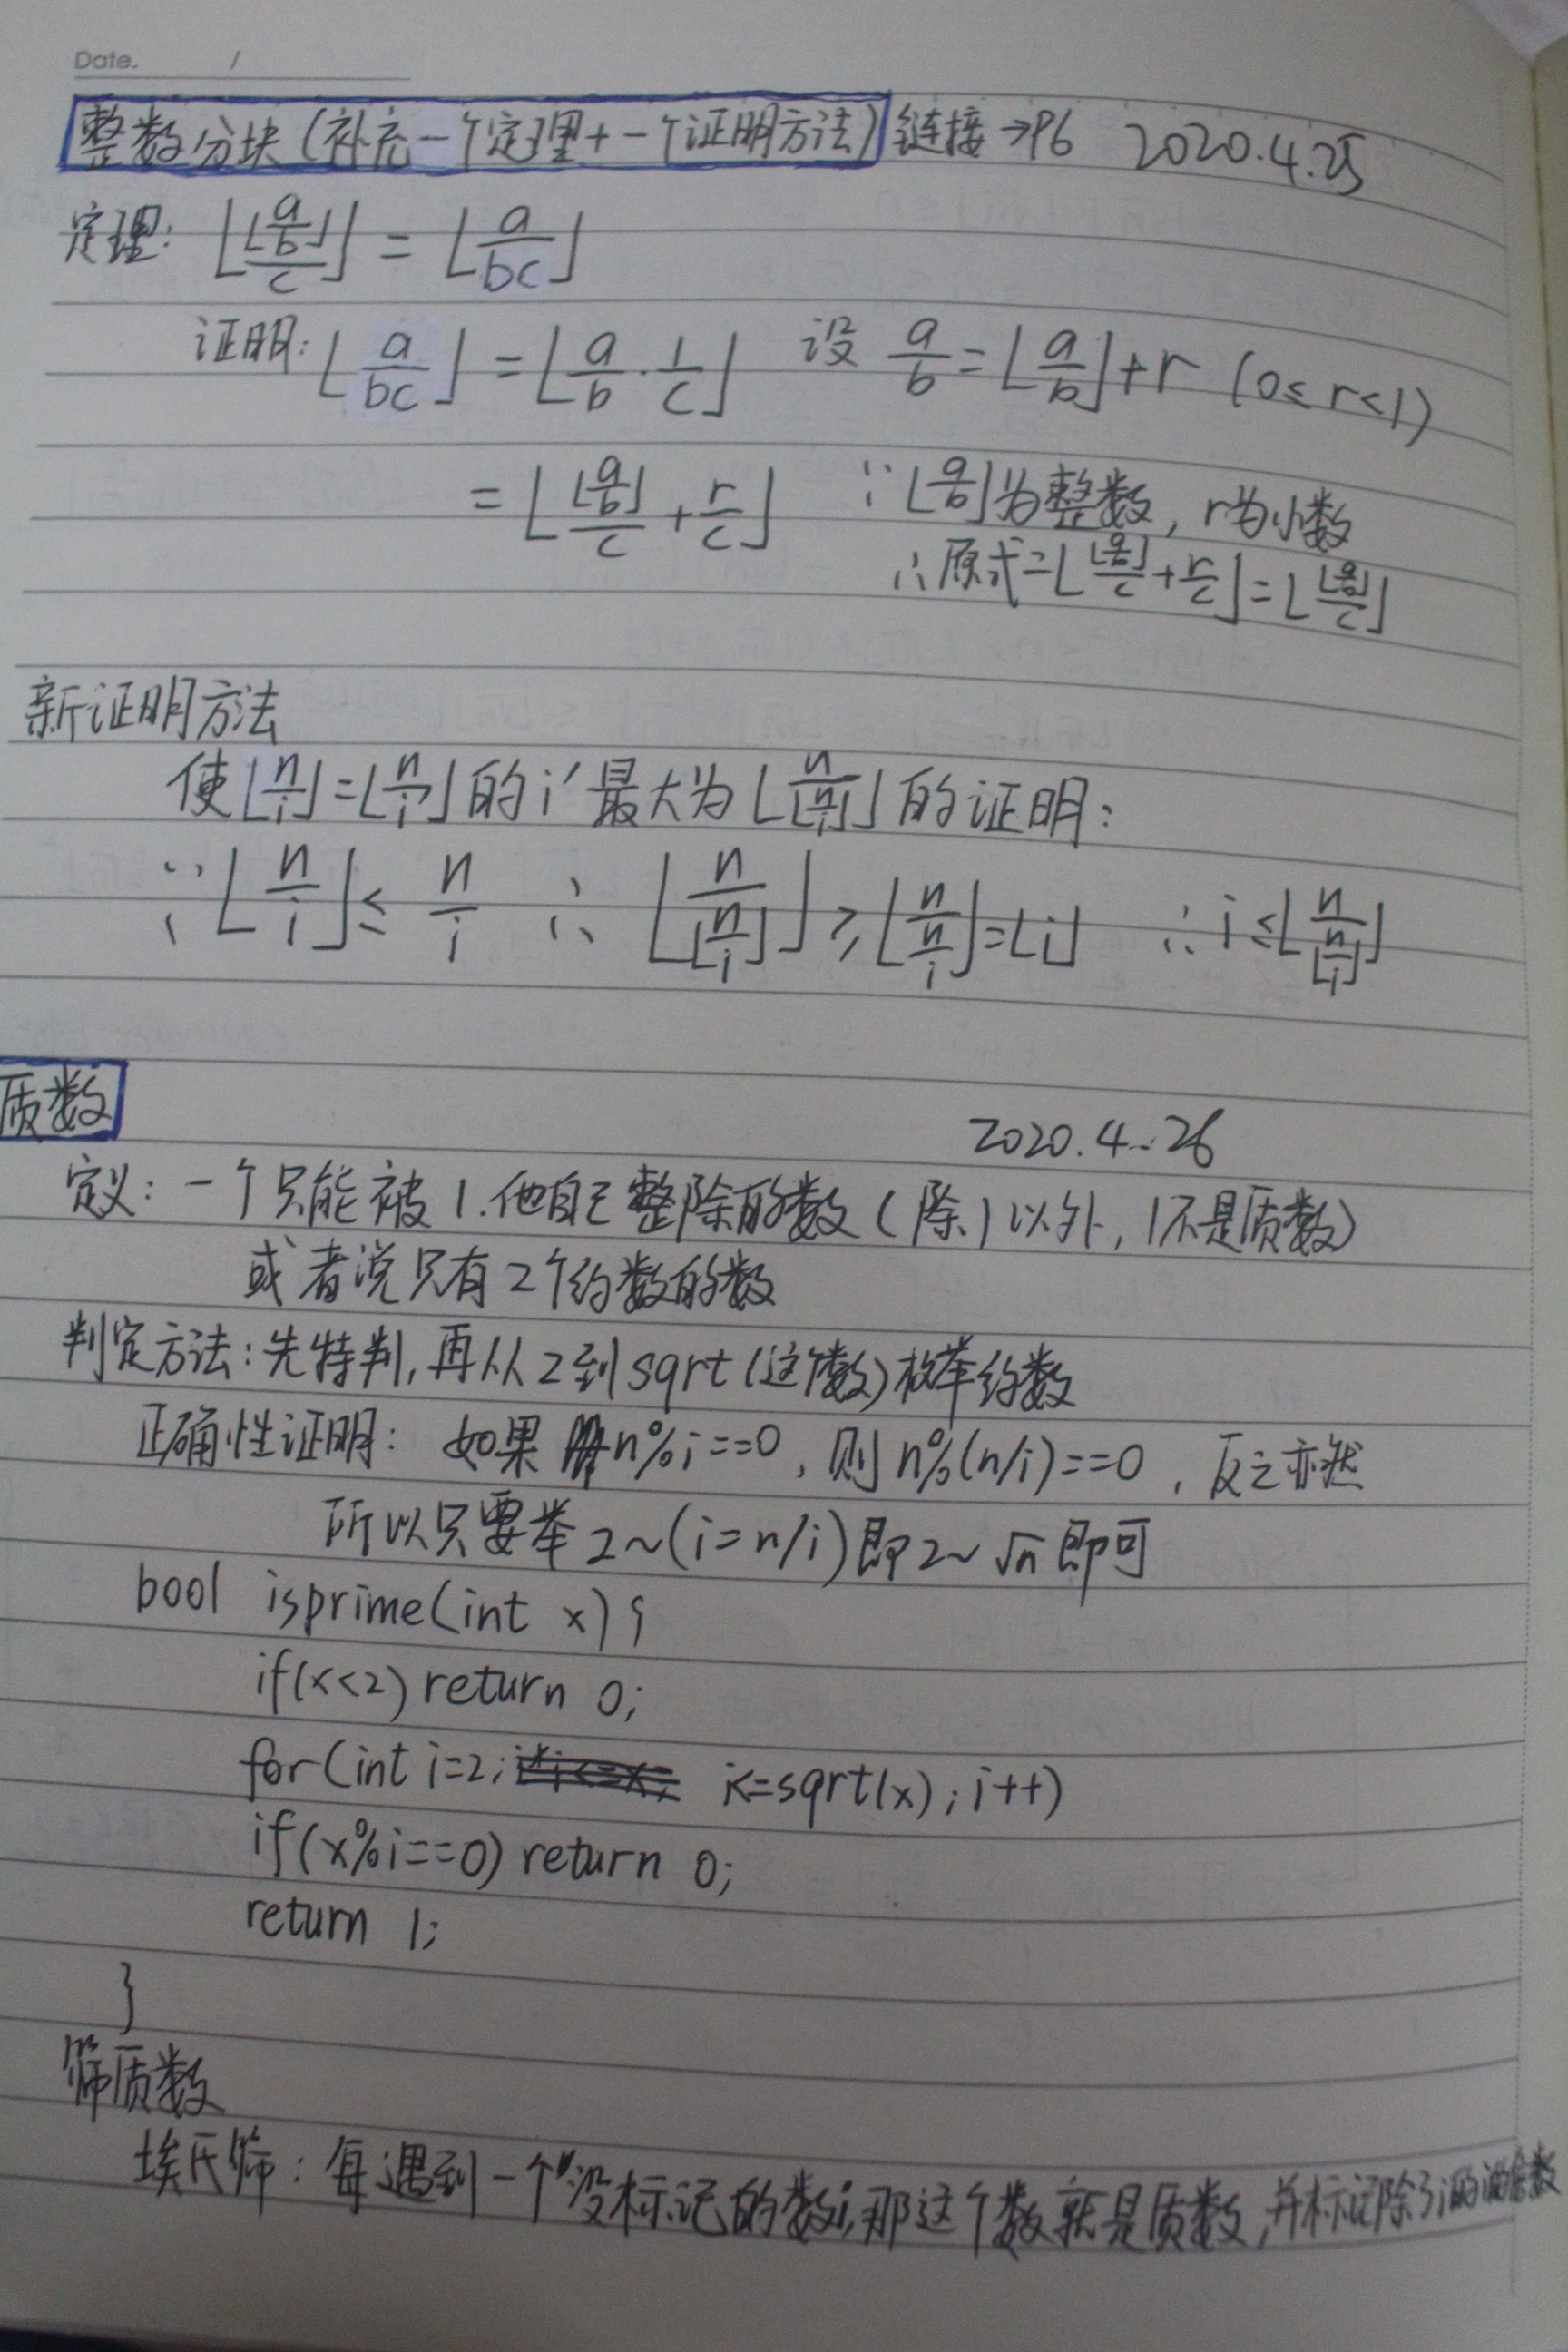 Date. /
整数分块(补充一个定理+一个证明方法) 链接→P6 2020.4.25
定理: ⌊⌊a/b⌋/c⌋ = ⌊a/bc⌋
证明: ⌊a/bc⌋ = ⌊a/b · 1/c⌋ 设 a/b = ⌊a/b⌋+r (0≤r<1)
= ⌊⌊a/b⌋/c + r/c⌋ ∵⌊a/b⌋为整数, r为小数
∴原式=⌊⌊a/b⌋/c + r/c⌋=⌊⌊a/b⌋/c⌋
新证明方法
使⌊n/i⌋=⌊n/i'⌋的i'最大为⌊n/⌊n/i⌋⌋的证明:
∵⌊n/i⌋≤ n/i ∴ ⌊n/⌊n/i⌋⌋ ≥ ⌊n/(n/i)⌋=⌊i⌋ ∴ i≤⌊n/⌊n/i⌋⌋
质数
2020.4.26
定义: 一个只能被1.他自己整除的数(除1以外, 1不是质数)
或者说只有2个约数的数
判定方法: 先特判, 再从2到sqrt(这个数)枚举约数
正确性证明: 如果 n%i==0, 则 n%(n/i)==0, 反之亦然
所以只要举2~(i=n/i)即2~√n即可
bool isprime(int x){
if(x<2) return 0;
for(int i=2; i<=sqrt(x); i++)
if(x%i==0) return 0;
return 1;
}
筛质数
埃氏筛: 每遇到一个没标记的数i,那这个数就是质数,并标记除了i的